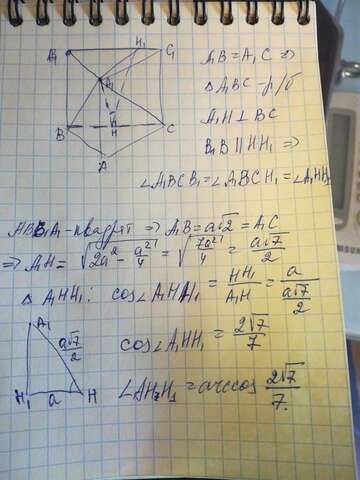 B₁ H₁ C₁
A₁
B H C
A
A₁B = A₁C ⇒
△ A₁BC - р/б
A₁H ⊥ BC
B₁B || HH₁ ⇒
∠A₁BCB₁ = ∠A₁BCH₁ = ∠A₁HH₁
ABB₁A₁ - квадрат ⇒ A₁B = a√2 = A₁C
⇒ A₁H = √(2a² - a²/4) = √(7a²/4) = a√7/2
△ A₁HH₁: cos∠A₁HH₁ = HH₁/A₁H = a/(a√7/2)
cos∠A₁HH₁ = 2√7/7
∠A₁HH₁ = arccos 2√7/7.
A₁
a√7/2
H₁ a H